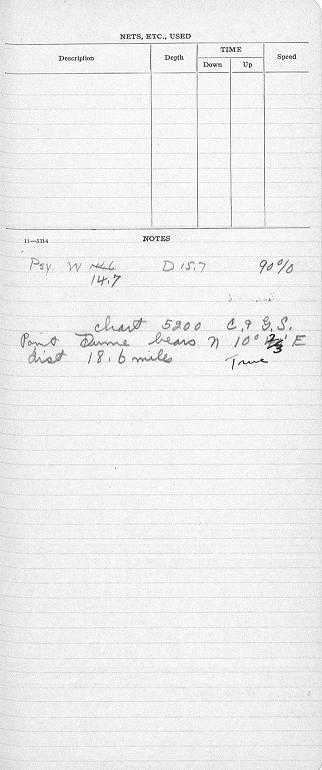 NETS, ETC., USED
Description Depth TIME Speed
Down Up
11—5314 NOTES
Psy. W D 15.7 90%
14.7
chart 5200 C. & G. S.
Point Dume bears N 10° 23' E
dist 18.6 miles True